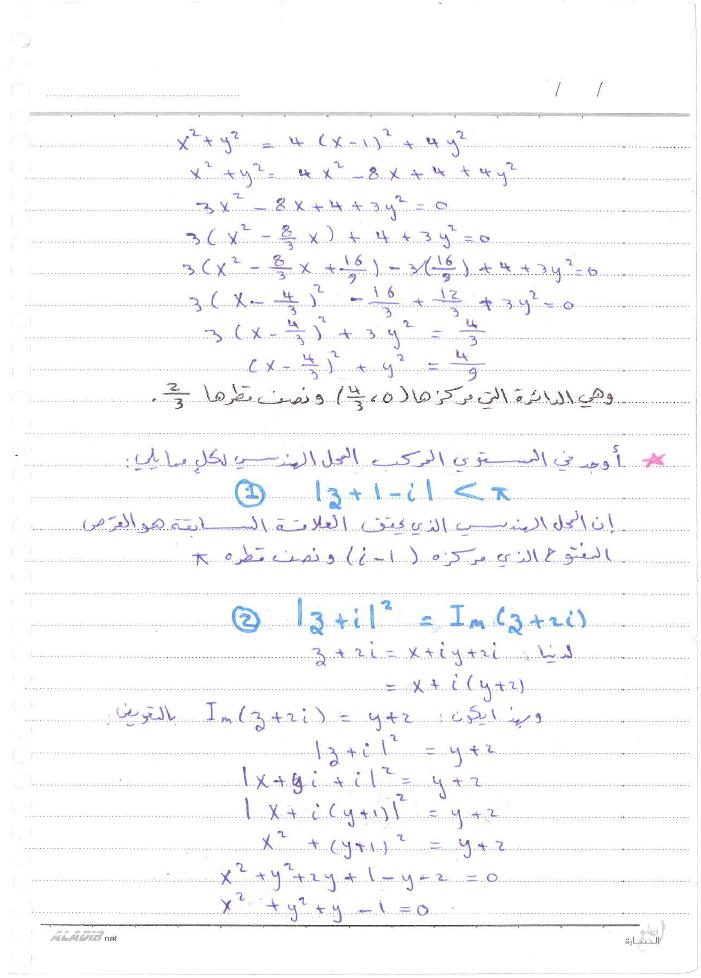 / /
x² + y² = 4 (x-1)² + 4y²
x² + y² = 4x² - 8x + 4 + 4y²
3x² - 8x + 4 + 3y² = 0
3(x² - 8/3 x) + 4 + 3y² = 0
3(x² - 8/3 x + 16/9) - 3(16/9) + 4 + 3y² = 0
3(x - 4/3)² - 16/3 + 12/3 + 3y² = 0
3(x - 4/3)² + 3y² = 4/3
(x - 4/3)² + y² = 4/9
وهي الدائرة التي مركزها (4/3 ، 0) ونصف قطرها 2/3 .
أوجد في المستوي المركب المحل الهندسي لكل مما يلي:
① |z + 1 - i| < π
إن المحل الهندسي الذي يحقق العلاقة السابقة هو القرص
المفتوح الذي مركزه (i-1) ونصف قطره π
② |z + i|² = Im(z + 2i)
لدينا: z + 2i = x + iy + 2i
= x + i(y+2)
وبهذا يكون: Im(z + 2i) = y + 2 بالتعويض:
|z + i|² = y + 2
|x + yi + i|² = y + 2
|x + i(y+1)|² = y + 2
x² + (y+1)² = y + 2
x² + y² + 2y + 1 - y - 2 = 0
x² + y² + y - 1 = 0
ALADIB.net
الحضارة